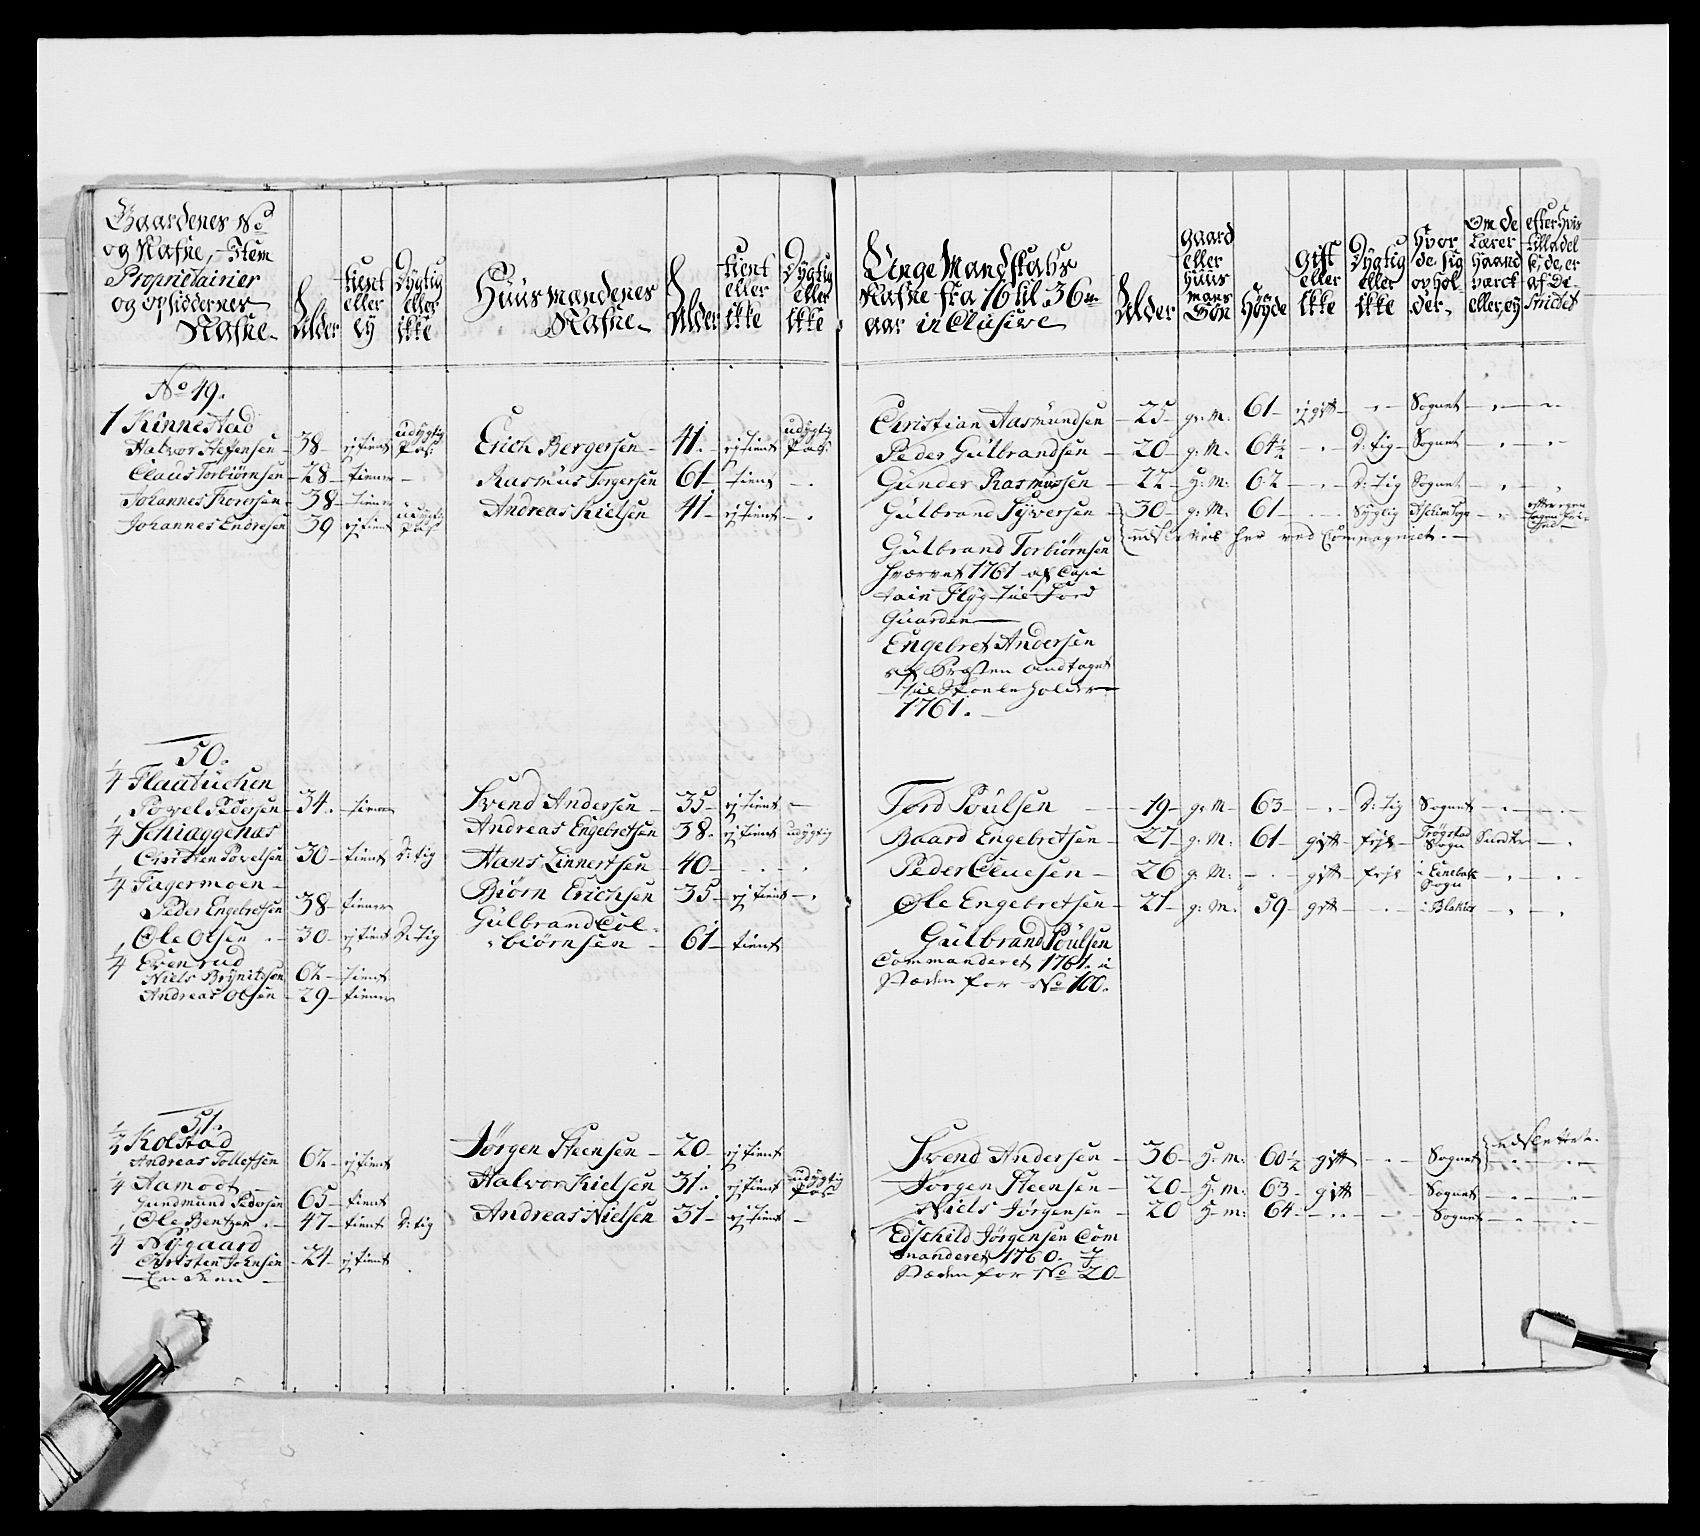 Gaardenes No
og Nafne, Item
Proprietairier
og opsiddernes
Nafne
Alder
tient eller ey
Dygtig eller ikke
Huusmandenes Nafne
Alder
tient eller ikke
Dygtig eller ikke
Unge Mandskabs
Nafne fra 16 til 36
aar inclusive
Alder
gaard eller huus mans Søn
Høyde
gift eller ikke
Dygtig eller ikke
hvor de sig ophol der
Om de Lærer haand værck eller, ey
No 49.
1 Kinnestad
Halvor Steffensen 38 ej tient udygtig
Claus Torbiørnsen 28 tiener
Johannes 38 tiener
Johannes Endresen 39 ej tient udygtig
Erich Bergersen 41 ej tient udygtig
Rasmus Torgersen 61 tient
Andreas Kielsen 41 ej tient
Christian Aasmundsen 25 g: M: 61 ej gift Sognet
Peder Gulbrandsen 20 g: M: 64½ D:tig Sognet
Gunder Rasmussen 22 h: M: 62 D:tig Sognet
Gulbrand Syversen 30 g: M: 61 Syglig
Gulbrand Torbiørnsen
hværvet 1761 af Capi
tain Flyg til Ford
Guarden
Engebret Andersen
af Præsten andtaget
til Skoeleholder
1761.
50.
¼ Flaatuchen
Povel Pedersen 34 tiener
¼ Schiaggenæs
Christen Povelsen 30 tient D:tig
¼ Fagermoen
Peder Engebretsen 38 tiener
Ole Olsen 30 ej tient D:tig
¼ Evenrud
Niels Brynildsen 62 tient
Andreas Olsen 29 tiener
Svend Andersen 35 ej tient
Andreas Engebretsen 38 ej tient udygtig
Hans Linnertsen 40
Biørn Erichsen 35 ej tient
Gulbrand Col
biørnsen 61 tient
Tord Poulsen 19 g: M 63 D:tig Sognet
Baard Engebretsen 27 g: M: 61 gift Trøgstad Sogn
Peder Cluesen 26 g: M: gift
Ole Engebretsen 21 g: M. 59 gift i Blakier
Gulbrand Poulsen
Commanderet 1761. i
Stæden for No 100.
51.
½ Kolstad
Andreas Tollefsen 62 ej tient
¼ Aamodt
Gundmund Pedersen 65 tient
Ole Bentzen 47 tient D:tig
¼ Nygaard
Christen Johnsen 24 ej tient
Jørgen Steensen 20 ej tient
Halvor Kielsen 31 ej tient udygtig
Andreas Nielsen 31 ej tient
Svend Andersen 36 h: m: 60½ gift Sognet udslettet
Jørgen Steensen 20 h: m: 63 gift Sognet
Niels Jørgensen 20 h: m: 64 Sognet
Edschild Jørgensen Com
manderet 1760. i
Stæden for No 20